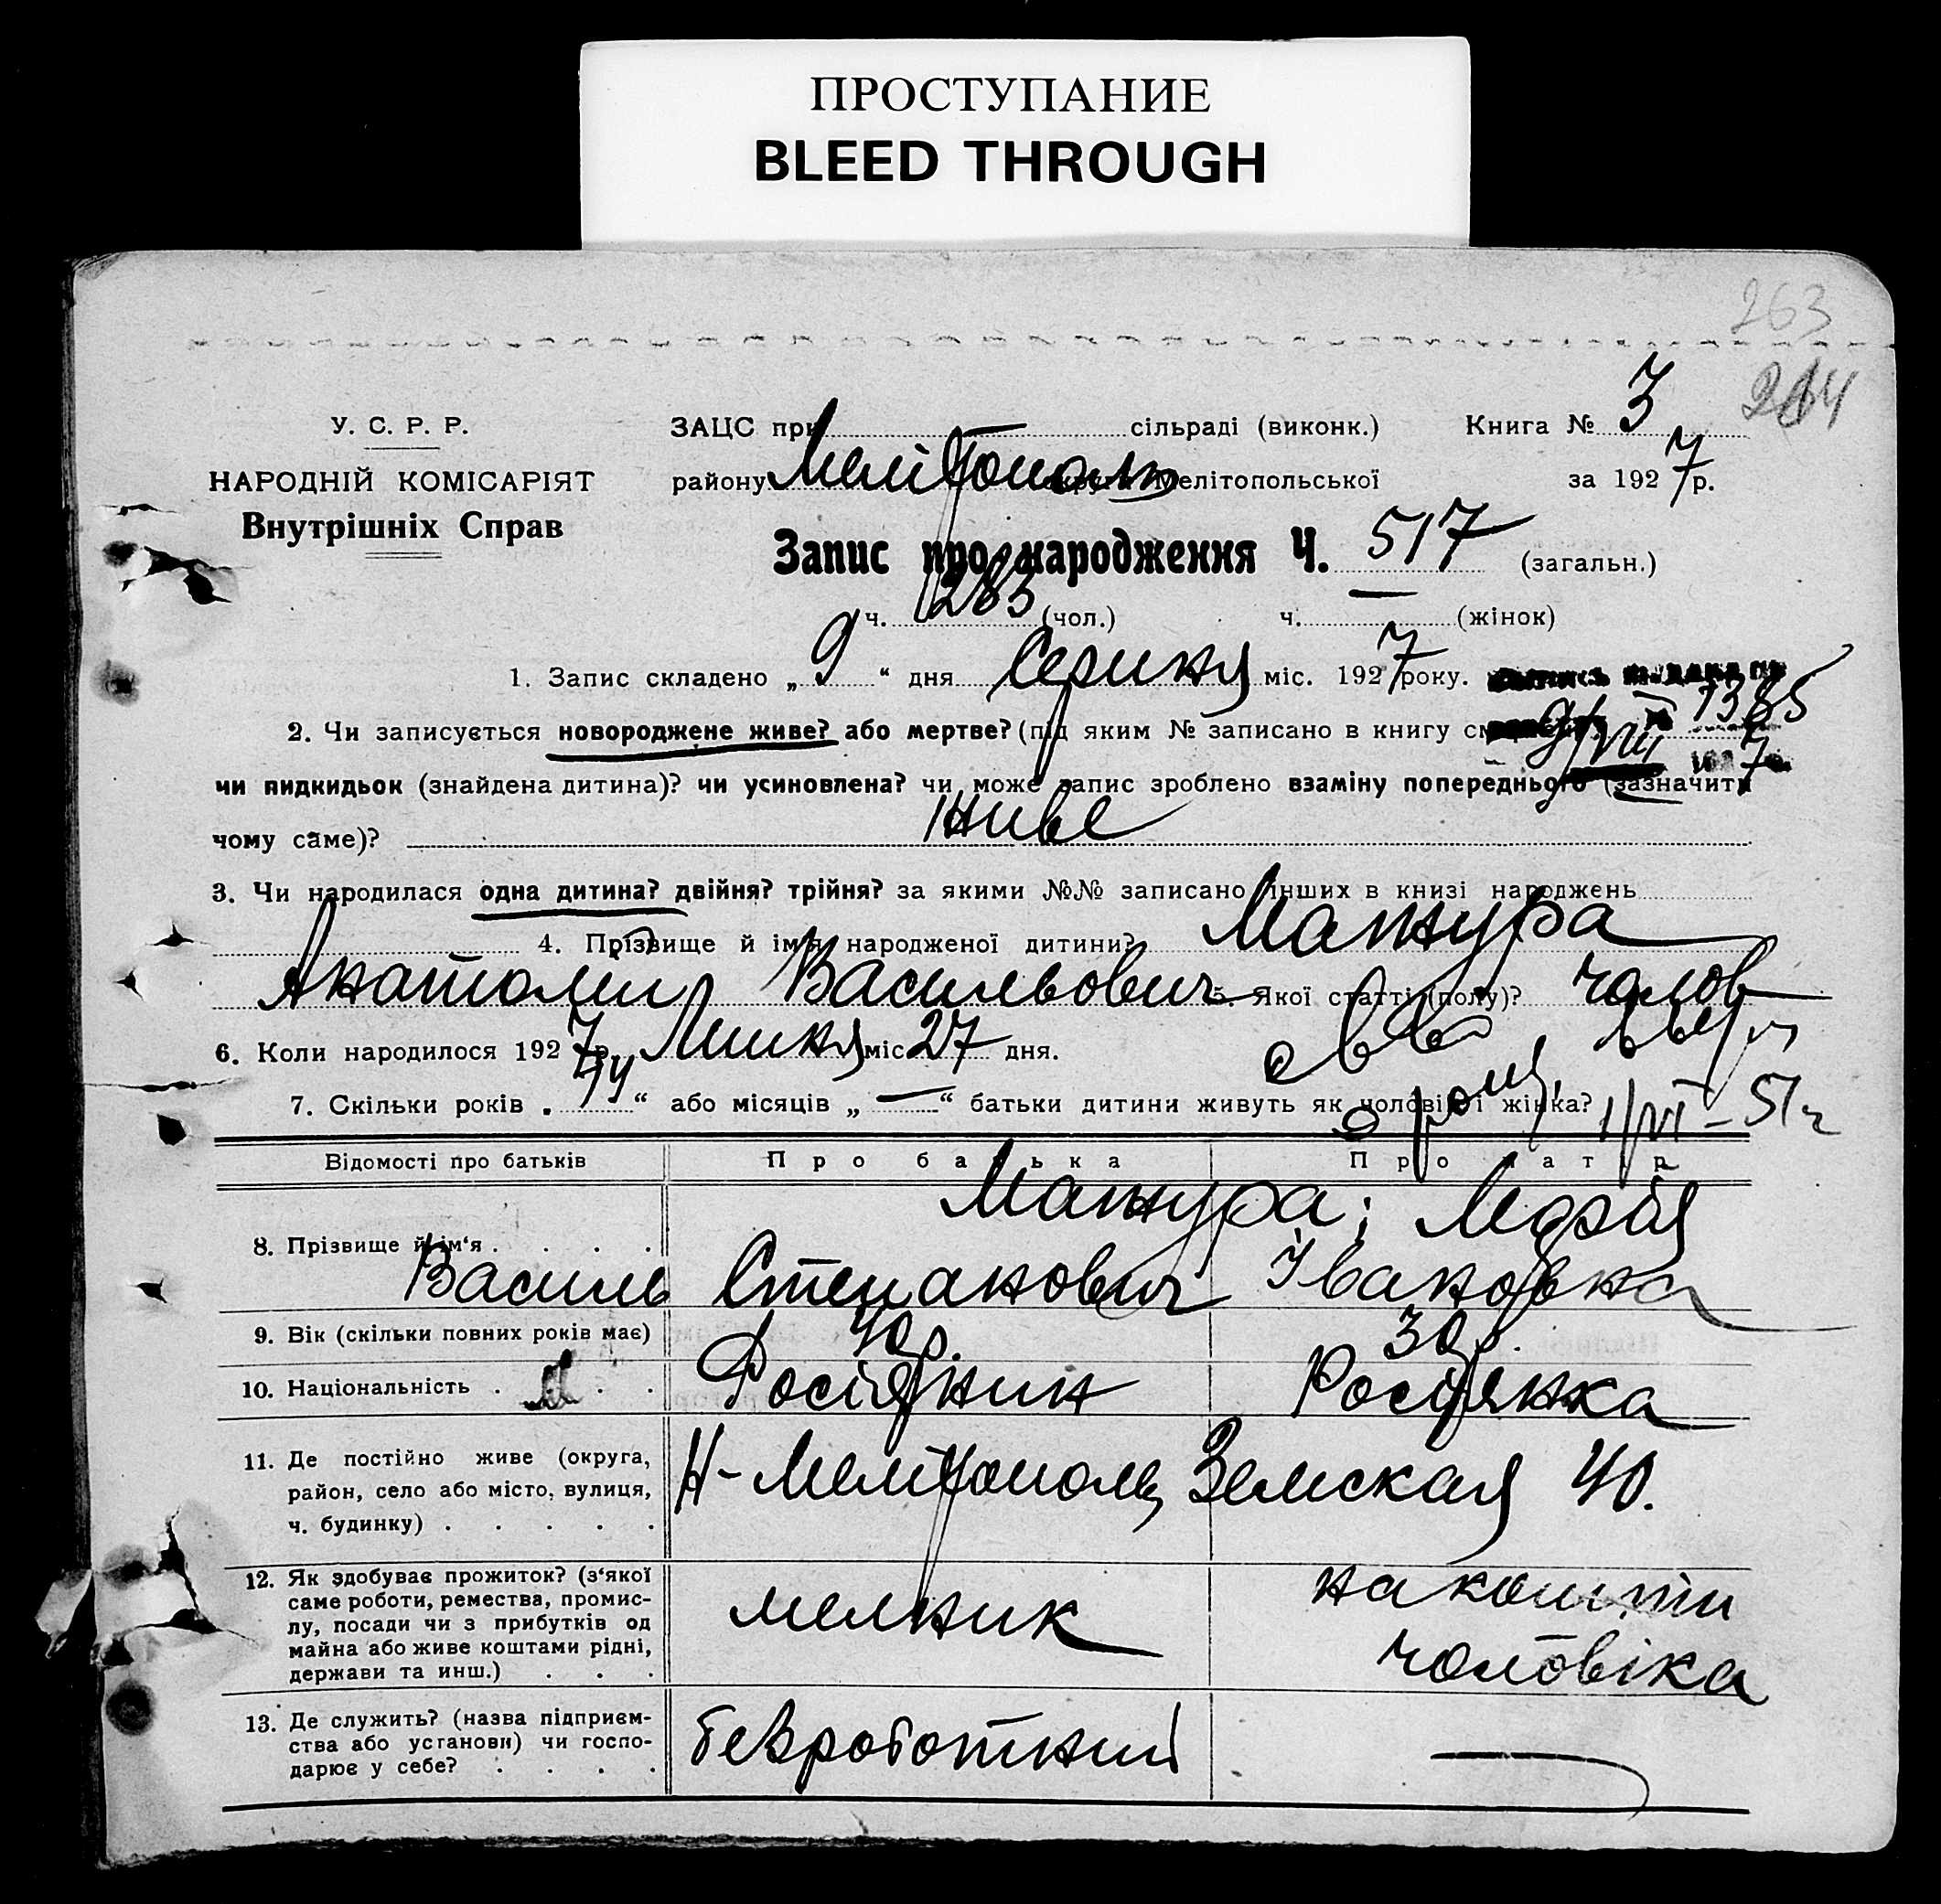 ПРОСТУПАНИЕ
BLEED THROUGH
263
У. С. Р. Р.
НАРОДНІЙ КОМІСАРІЯТ
Внутрішніх Справ
ЗАЦС при сільраді (виконк.) Книга № 3
району Мелітополь округи Мелітопольської за 1927 р.
Запис про народження Ч. 517 (загальн.)
ч. 283 (чол.) ч. — (жінок)
1. Запис складено „9“ дня Серпня міс. 1927 року.
7385
2. Чи записується новороджене живе? або мертве? (під яким № записано в книгу 9/VIII 1927
чи пидкидьок (знайдена дитина)? чи усиновлена? чи може запис зроблено взаміну попереднього (зазначити
чому саме)? живе
3. Чи народилася одна дитина? двійня? трійня? за якими №№ записано інших в книзі народжень
4. Прізвище й ім'я народженої дитини? Мажура
Анатолий Васильович 5. Якої статті (полу)? чолов
6. Коли народилося 1927 р. Липня міс 27 дня.
7. Скільки років „14“ або місяців „—“ батьки дитини живуть як чоловік і жінка?
1/VI – 51 г
Відомості про батьків Про батька Про матір
8. Прізвище й ім'я . . . . Мажура; Марія
Василь Степанович Івановна
9. Вік (скільки повних років має) 40 р. 30 р.
10. Національність . . . Росіянин Росіянка
11. Де постійно живе (округа,
район, село або місто, вулиця,
ч. будинку) . . . . . Н-Мелітополь, Земская 40.
12. Як здобуває прожиток? (з'якої
саме роботи, ремества, промис-
лу, посади чи з прибутків од
майна або живе коштами рідні,
держави та инш.) . . . мелник на кошти
чоловіка
13. Де служить? (назва підприєм-
ства або установи) чи госпо-
дарює у себе? . . . . безроботний —